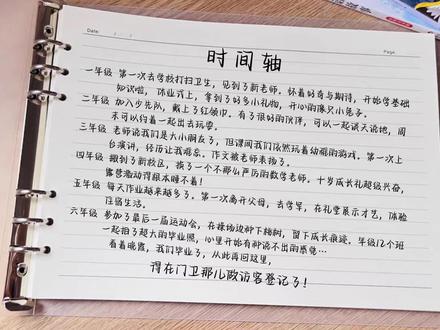 Date: / /
Page:
时间轴
一年级 第一次去学校打扫卫生，见到了新老师。怀着好奇与期待，开始学基础
知识啦，休业式上，拿到了好多小礼物，开心的像只小兔子。
二年级 加入少先队，戴上了红领巾。有了很好的伙伴，可以一起谈天说地，周
末可以约着一起出去玩耍。
三年级 老师说我们是大小朋友了，但课间我们依然玩着幼稚的游戏。第一次上
台演讲，经历让我难忘。作文被老师表扬了。
四年级 搬到了新校区，换了一个不那么严厉的数学老师。十岁成长礼超级兴奋，
露营激动得根本睡不着！
五年级 每天作业越来越多了。第一次离开父母，去学军，在礼堂展示才艺，体验
住宿生活。
六年级 参加了最后一届运动会，在操场边种下梅树，留下成长痕迹。年级12个班
一起拍了超大的毕业照，心里开始有种说不出的感觉…
看着晚霞，我们毕业了，从此再回这里，
得在门卫那儿做访客登记了！